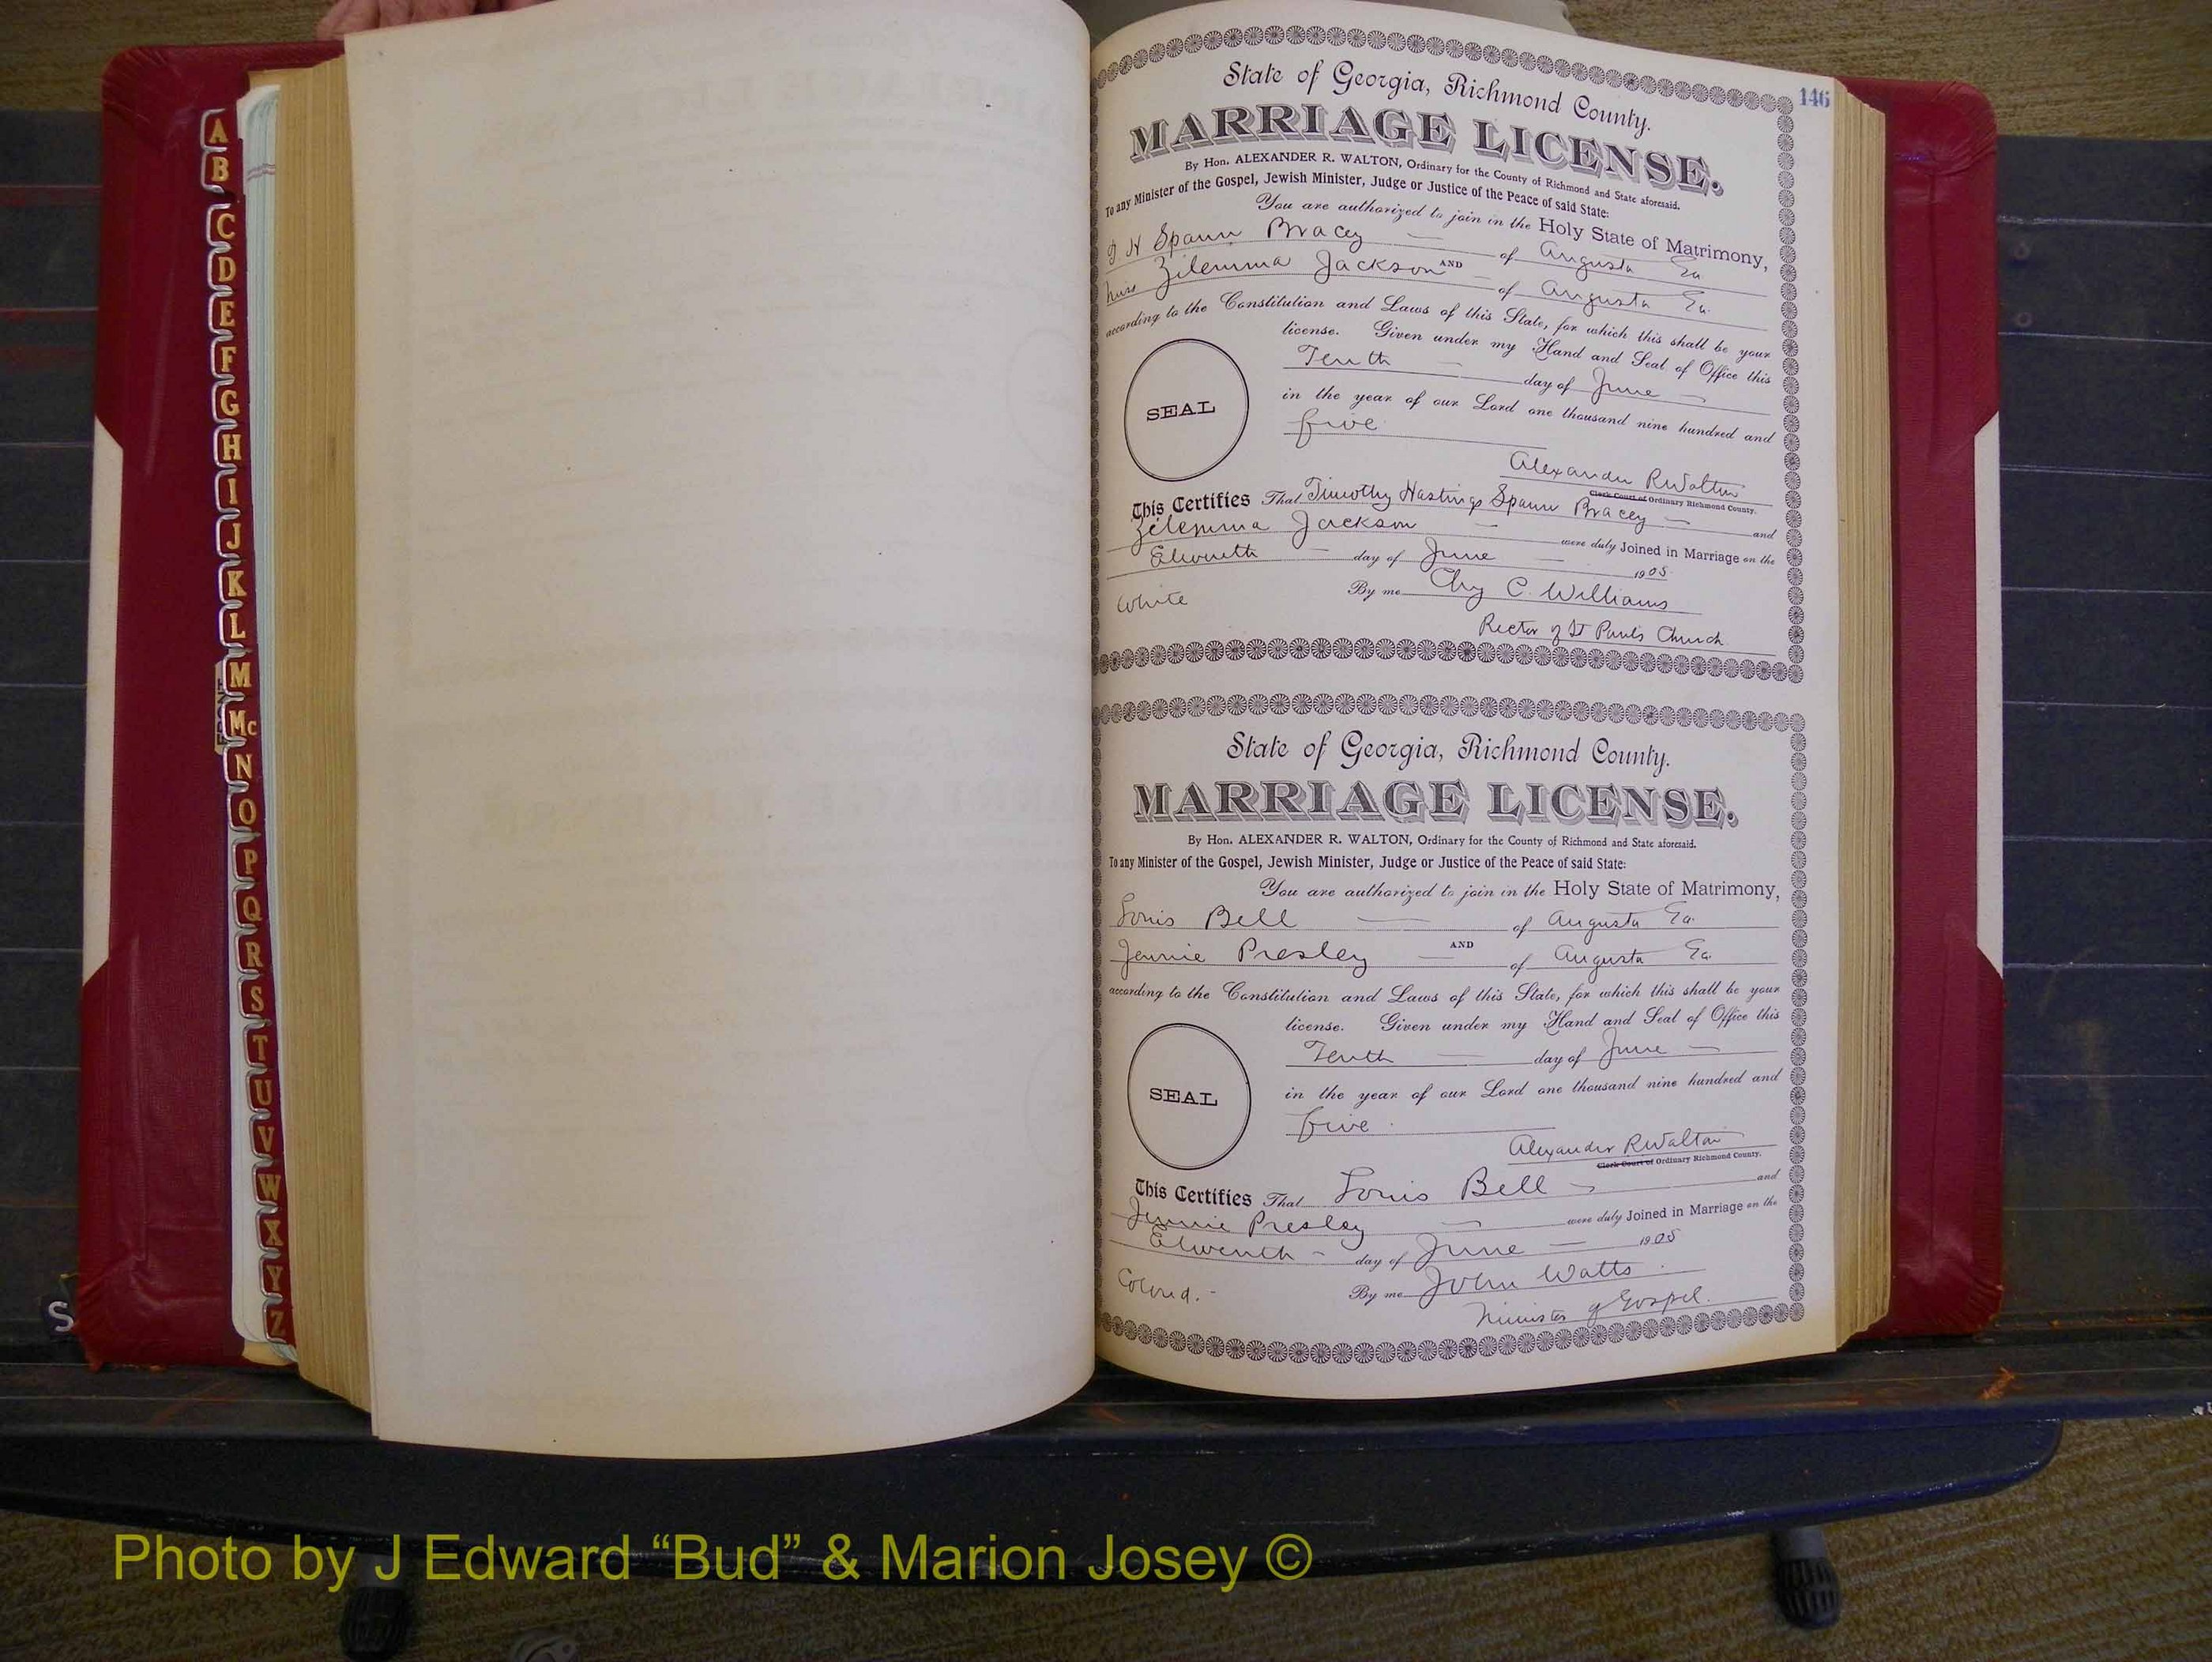 A
B
C
D
E
F
G
H
I
J
K
L
M
Mc
N
O
P
Q
R
S
T
U
V
W
X
Y
Z
S
146
State of Georgia, Richmond County.
MARRIAGE LICENSE.
By Hon. ALEXANDER R. WALTON, Ordinary for the County of Richmond and State aforesaid.
To any Minister of the Gospel, Jewish Minister, Judge or Justice of the Peace of said State:
You are authorized to join in the Holy State of Matrimony,
H Spann Bracey of Augusta Ga
AND
Miss Zilemma Jackson of Augusta Ga.
according to the Constitution and Laws of this State, for which this shall be your
license. Given under my Hand and Seal of Office this
Tenth day of June
in the year of our Lord one thousand nine hundred and
five
SEAL
Alexander R Walton
Clerk Court of Ordinary Richmond County.
This Certifies That Timothy Hastings Spann Bracey and
Zilemma Jackson were duly Joined in Marriage on the
Eleventh day of June 1905.
White By me Chas C. Williams
Rector of St Pauls Church.
State of Georgia, Richmond County.
MARRIAGE LICENSE.
By Hon. ALEXANDER R. WALTON, Ordinary for the County of Richmond and State aforesaid.
To any Minister of the Gospel, Jewish Minister, Judge or Justice of the Peace of said State:
You are authorized to join in the Holy State of Matrimony,
Louis Bell of Augusta Ga.
AND
Jennie Presley of Augusta Ga.
according to the Constitution and Laws of this State, for which this shall be your
license. Given under my Hand and Seal of Office this
Tenth day of June
in the year of our Lord one thousand nine hundred and
five
SEAL
Alexander R Walton
Clerk Court of Ordinary Richmond County.
This Certifies That Louis Bell and
Jennie Presley were duly Joined in Marriage on the
Eleventh day of June 1905
Colored. By me John Watts.
Minister of Gospel.
Photo by J Edward “Bud” & Marion Josey ©